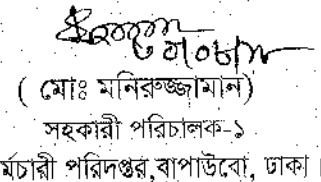 ( মোঃ মনিরুজ্জামান)
সহকারী পরিচালক-১
র্মচারী পরিদপ্তর,বাপাউবো, ঢাকা।